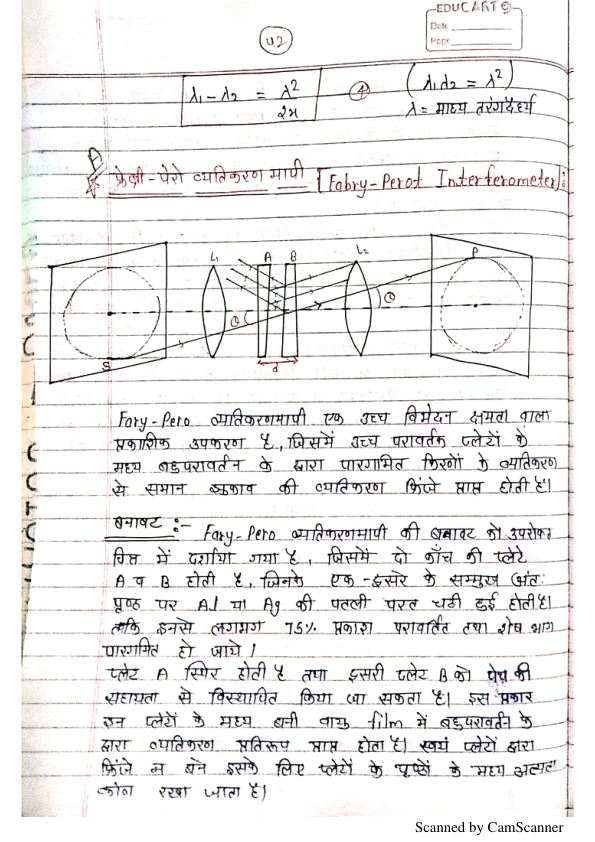 EDUCART
Date
Page
42
λ₁ - λ₂ = λ²/2x (λ₁λ₂ = λ²)
λ = माध्य तरंगदैर्ध्य
फ्रेब्री-पेरो व्यतिकरणमापी [Fabry-Perot Interferometer]:
L₁ A B L₂ P
θ θ
S d
Fary-Pero व्यतिकरणमापी एक उच्च विभेदन क्षमता वाला
प्रकाशिक उपकरण है, जिसमें उच्च परावर्तक प्लेटों के
मध्य बहुपरावर्तन के द्वारा पारगमित किरणों के व्यतिकरण
से समान झुकाव की व्यतिकरण फ्रिंजे प्राप्त होती है।
बनावट :- Fary-Pero व्यतिकरणमापी की बनावट को उपरोक्त
चित्र में दर्शाया गया है, जिसमें दो काँच की प्लेटे
A व B होती है, जिनके एक-दूसरे के सम्मुख अंतः
पृष्ठ पर Al या Ag की पतली परत चढी हुई होती है।
ताकि इनसे लगभग 75% प्रकाश परावर्तित तथा शेष भाग
पारगमित हो जाये।
प्लेट A स्थिर होती है तथा दूसरी प्लेट B को पेंच की
सहायता से विस्थापित किया जा सकता है। इस प्रकार
इन प्लेटों के मध्य बनी वायु film में बहुपरावर्तन के
द्वारा व्यतिकरण प्रतिरूप प्राप्त होता है। स्वयं प्लेटों द्वारा
फ्रिंजे न बने इसके लिए प्लेटों के पृष्ठों के मध्य अल्पतः
कोण रखा जाता है।
Scanned by CamScanner